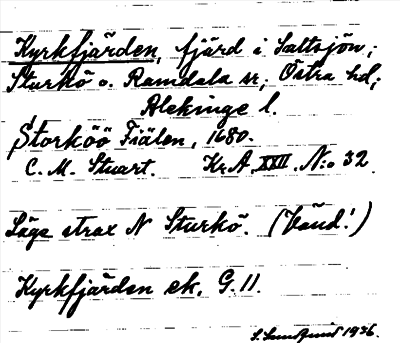 Kyrkfjärden, fjärd i Saltsjön;
Sturkö o. Ramdala sr; Östra hd;
Blekinge l.
Storköö Fiälen, 1680.
C. M. Stuart. Kr. A. XXII. N:o 32.
Läge strax N Sturkö. (Vänd!)
Kyrkfjärden ek. G. 11.
1936.